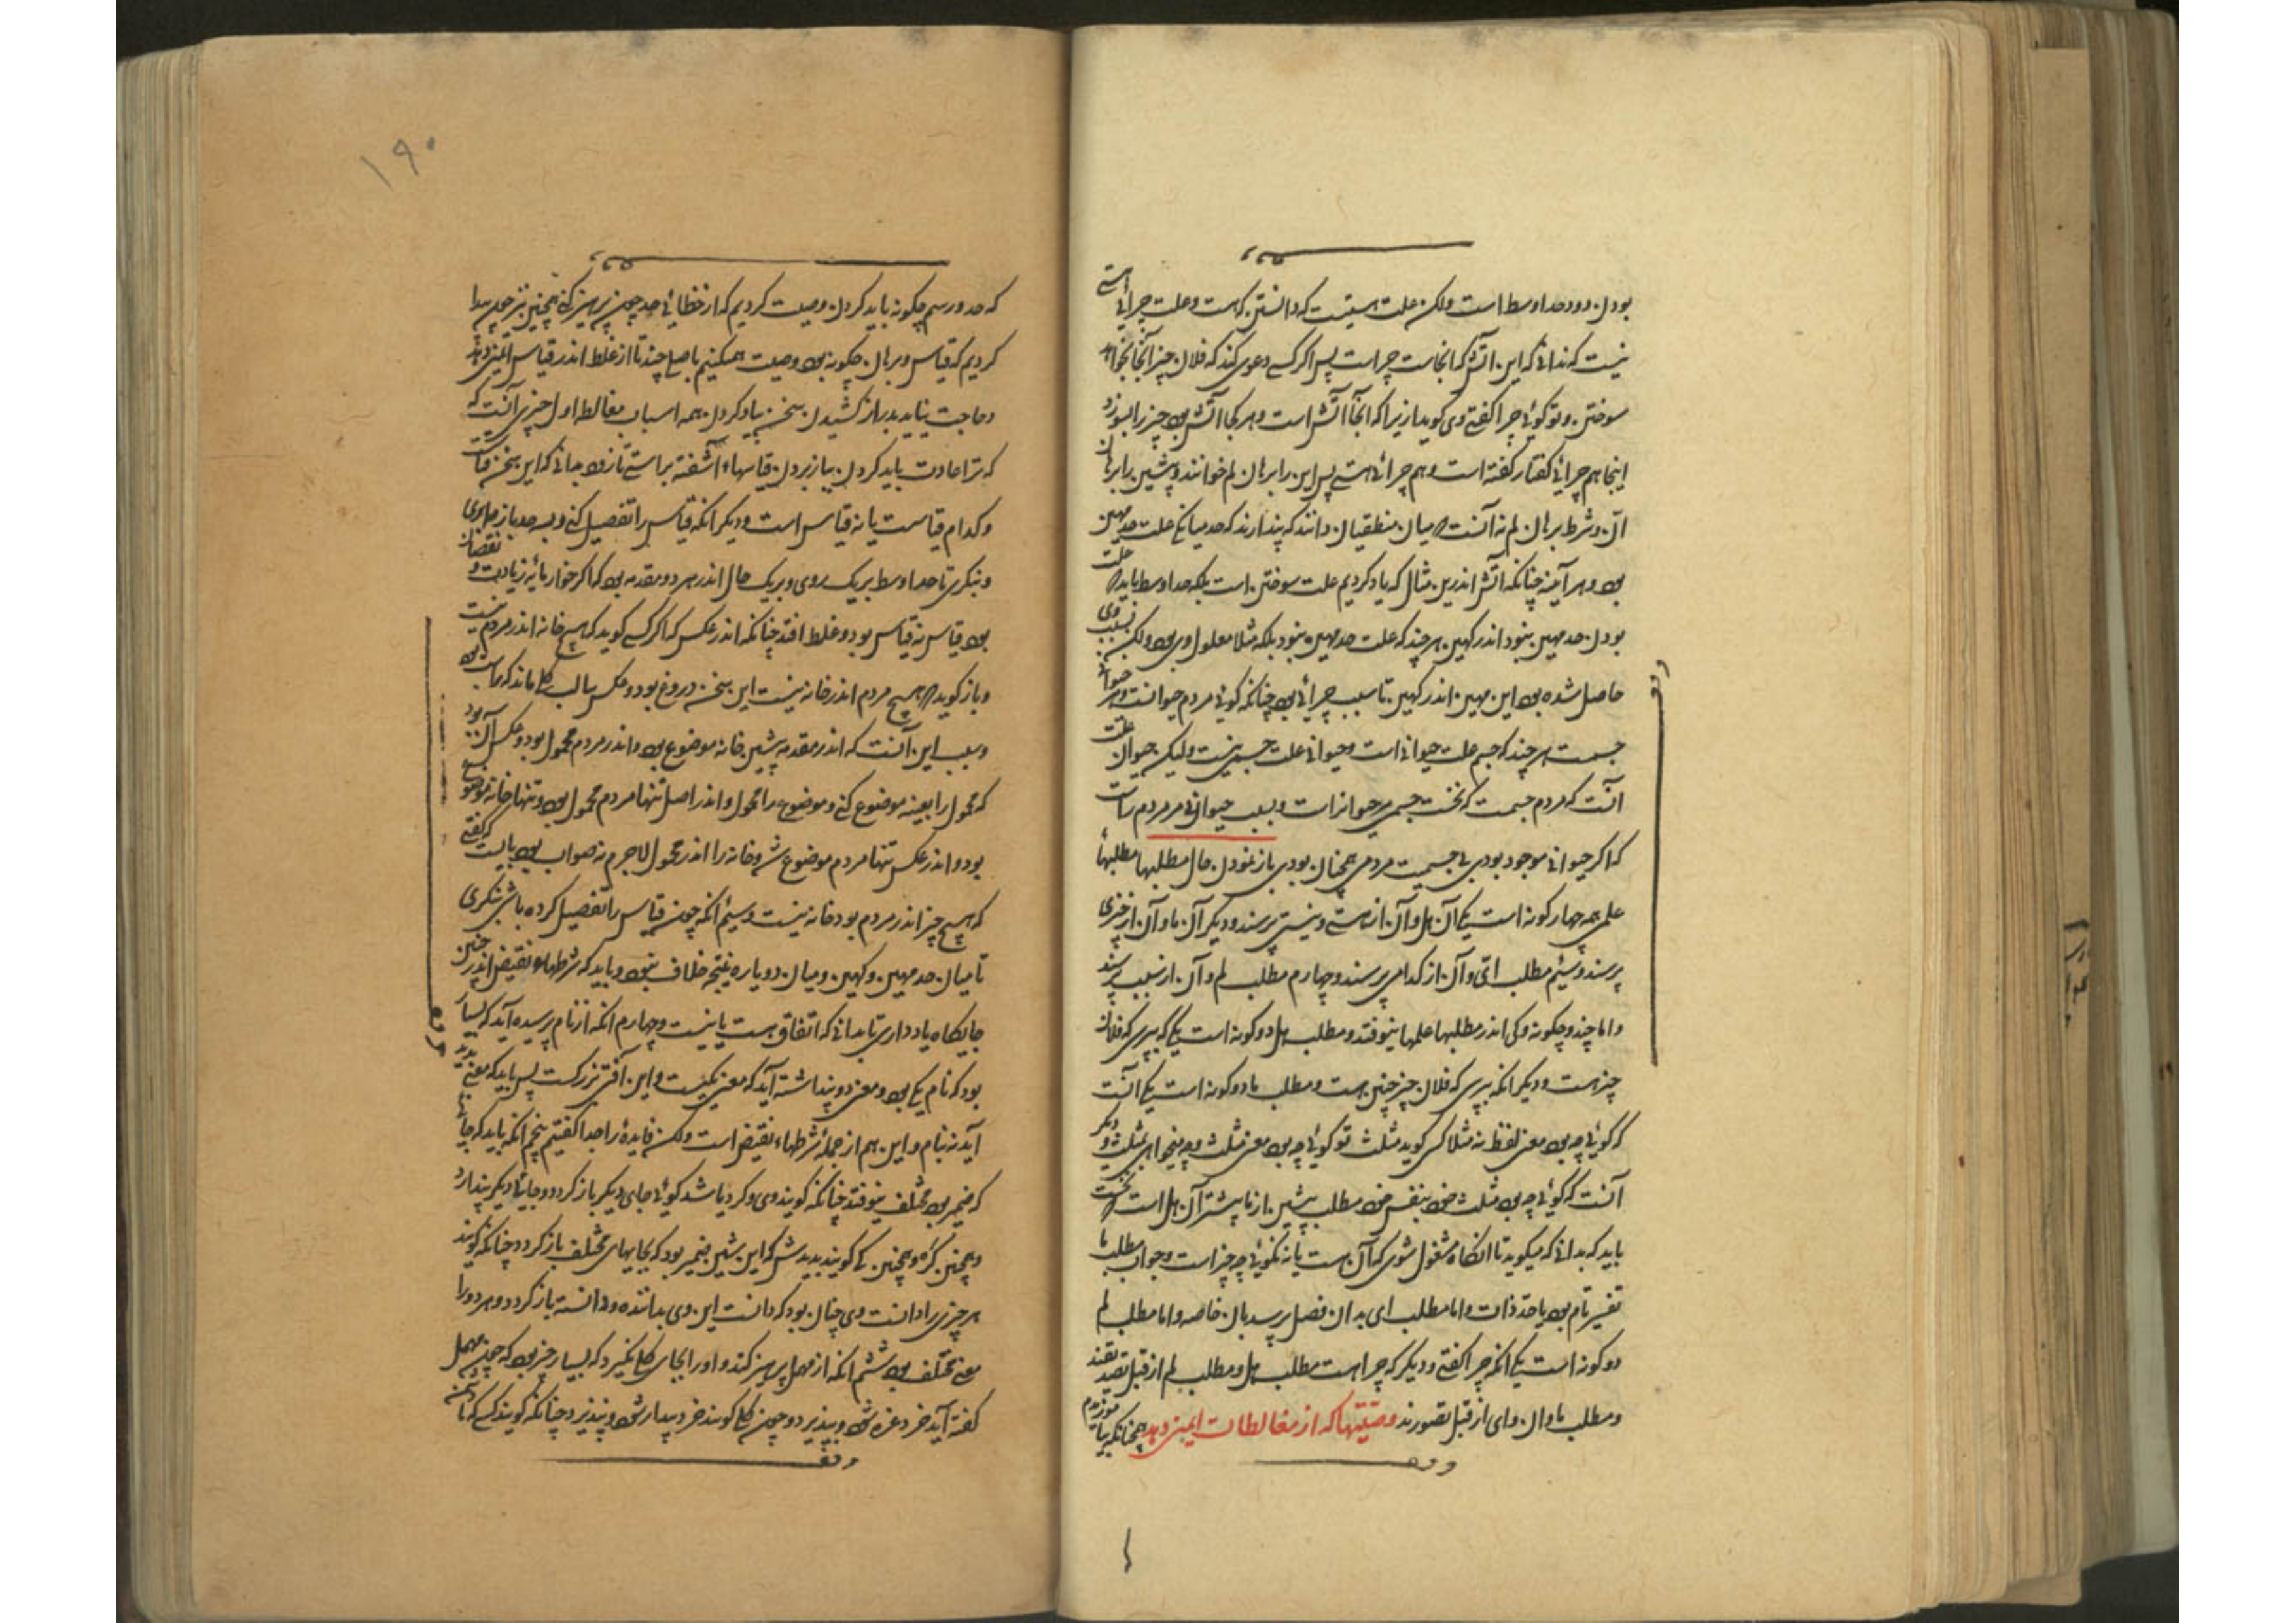 بودن دود حد اوسط است ولکن علت هستیست که دانستن که هست و علت چرائی هستی
نیست که ندانی که این آتش که آنجاست چراست پس اگر کسی دعوی کند که فلان چیز آنجا بخواهد
سوختن و تو گوئی چرا گفتی وی گوید ازیرا که آنجا آتش است و هر کجا آتش بود چیز را بسوزد
اینجا هم چرائی گفتار گفته است و هم چرائی هستی پس این را برهان لم خوانند و پیشین را برهان
ان و شرط برهان لم نه آنست که میان منطقیان دانند که پندارند که حد میانگی علت حد مهین
بود و هر آینه چنانکه آتش اندرین مثال که یاد کردیم علت سوختن است بلکه حد اوسط باید که علت
بودن حد مهین بود اندر کهین هر چند که علت حد مهین نبود بلکه مثلا معلول وی بود ولکن بسبب وی
حاصل شده بود این مهین اندر کهین تا سبب چرائی بود چنانکه گوئی مردم حیوانست و هر حیوانی
جسمست هر چند که جسم علت حیوانی است و حیوانی علت جسمی نیست ولیکن حیوان علت
آنست که مردم جسمست که نخست جسمی مر حیوانراست و بسبب حیوانی مر مردم راست
که اگر حیوانی موجود بودی بی جسمیت مردمی همچنان بودی باز نمودن حال مطلبها مطلبهاء
علمی همه چهار گونه است یکی آن هل و آن از هستی و نیستی پرسند و دیگر آن ما و آن از چیزی
پرسند و سیم مطلب ای و آن از کدامی پرسند و چهارم مطلب لم و آن از سبب پرسند
و اما چند و چگونه و کی اندر مطلبها علمها نیوفتد و مطلب هل دو گونه است یکی که پرسی که فلان
چیز هست و دیگر آنکه پرسی که فلان چیز چنین هست و مطلب ما دو گونه است یکی آنست
که گوئی چه بود معنی لفظ نه مثلا کسی گوید مثلث تو گوئی چه بود معنی مثلث و چه میخواهی بمثلث و دیگر
آنست که گوئی چه بود مثلث خود بنفس خود مطلب پیشین از ما پیشتر از آن هل است که نخست
باید که بدانی که میگوید تا آنگاه مشغول شوی که آن هست یا نه نگوئی چه چیز است و جواب مطلب ما
تفسیر نام بود یا حد ذات و اما مطلب ای بدان فصل پرسد یا از خاصه و اما مطلب لم
دو گونه است یکی آنکه چرا گفتی و دیگر که چرا هست مطلب هل و مطلب لم از قبل تصدیقند
و مطلب ما و ای از قبل تصورند وصیّتها که از مغالطات ایمنی دهد همچنانکه بیاموزیدیم
۱۹۰
که حد و رسم چگونه باید کردن وصیت کردیم که از خطائی حد چون پرهیز کنی همچنین نیز چون پیدا
کردیم که قیاس و برهان چگونه بود وصیت همیکنیم باصلی چند تا از غلط اندر قیاس ایمنی دهد
و حاجت نیاید بدراز کشیدن سخن بیاد کردن همه اسباب مغالطه اول چیزی آنست که
که ترا عادت باید کردن بباز بردن قیاسهاء آشفته براستی تا زود بدانی که این سخن قیاست
و کدام قیاست یا نه قیاس است و دیگر آنکه قیاس را تفصیل کنی و بسه حد باز بری
و بنگری تا حد اوسط بر یک روی و بر یک حال اندر هر دو مقدمه بود که اگر خوار مایه زیادت و نقصان
بود قیاس نه قیاس بود و غلط افتد چنانکه اندر عکس که اگر کسی گوید که هیچ خانه اندر مردم نیست
و باز گوید که هیچ مردم اندر خانه نیست این سخن دروغ بود و عکس سالب کلی ماند که راست بود
و سبب این آنست که اندر مقدمه پیشین خانه موضوع بود و اندر مردم محمول بود و عکس آن بود
که محمول را بعینه موضوع کنی و موضوع را محمول و اندر اصل تنها مردم محمول بود و تنها خانه موضوع
بود و اندر عکس تنها مردم موضوع شد و خانه را اندر محمول لاجرم نه صواب بود بایست که گفتی
که هیچ چیز اندر مردم بود خانه نیست و سیم آنکه چون قیاس را تفصیل کرده باشی بنگری
تا میان حد مهین و کهین و میان دو پاره نتیجه خلاف نبود و باید که شرطهاء نقیض اندر چنین
جایگاه یاد داری تا بدانی که اتفاق هست یا نیست و چهارم آنکه از نام پرسیده آید که بسیار
بود که نام یکی بود و معنی دو پنداشته آید که معنی یکیست و این آفتی بزرگست پس باید که معنی بدید
آید نه نام و این هم از جمله شرطهاء نقیض است ولکن فایده را جدا گفتیم پنجم آنکه باید که جایها
که ضمیر بود مختلف نیوفتد چنانکه گویند وی و کرد باشد گوئی جای دیگر باز گردد و جائی دیگر پندارد
و همچنین کرد و همچنین که گویند بدیدش که این شین ضمیر بود که بجایهای مختلف باز گردد چنانکه گویند
هر چیزی را دانست وی چنان بود که دانست این وی بداننده و دانسته باز گردد و هر دو را
معنی مختلف بود ششم آنکه از مهمل پرهیز کند و او را بجای کلی نگیرد که بسیار چیز بود که چون مهمل
گفته آید خرد غره شود و بپذیرد و چون کلی گویند خرد بیدار شود و نپذیرد چنانکه گویند کسی که با دشمن